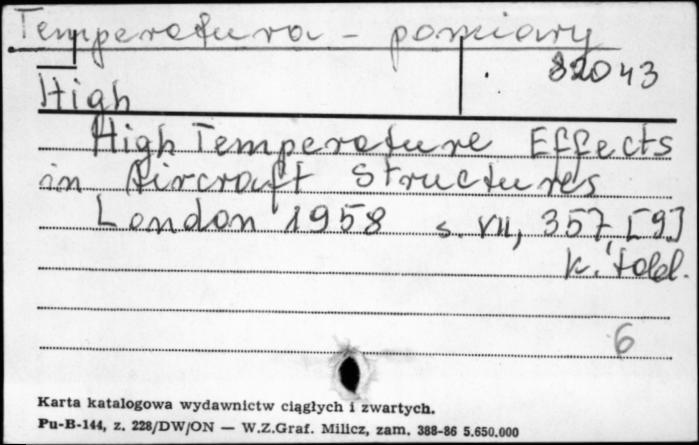 Temperatura - pomiary
82043
High
High Temperature Effects
in Aircraft Structures
London 1958 s. VII, 357, [9]
k. tabl.
6
Karta katalogowa wydawnictw ciągłych i zwartych.
Pu-B-144, z. 228/DW/ON — W.Z.Graf. Milicz, zam. 388-86 5.650.000